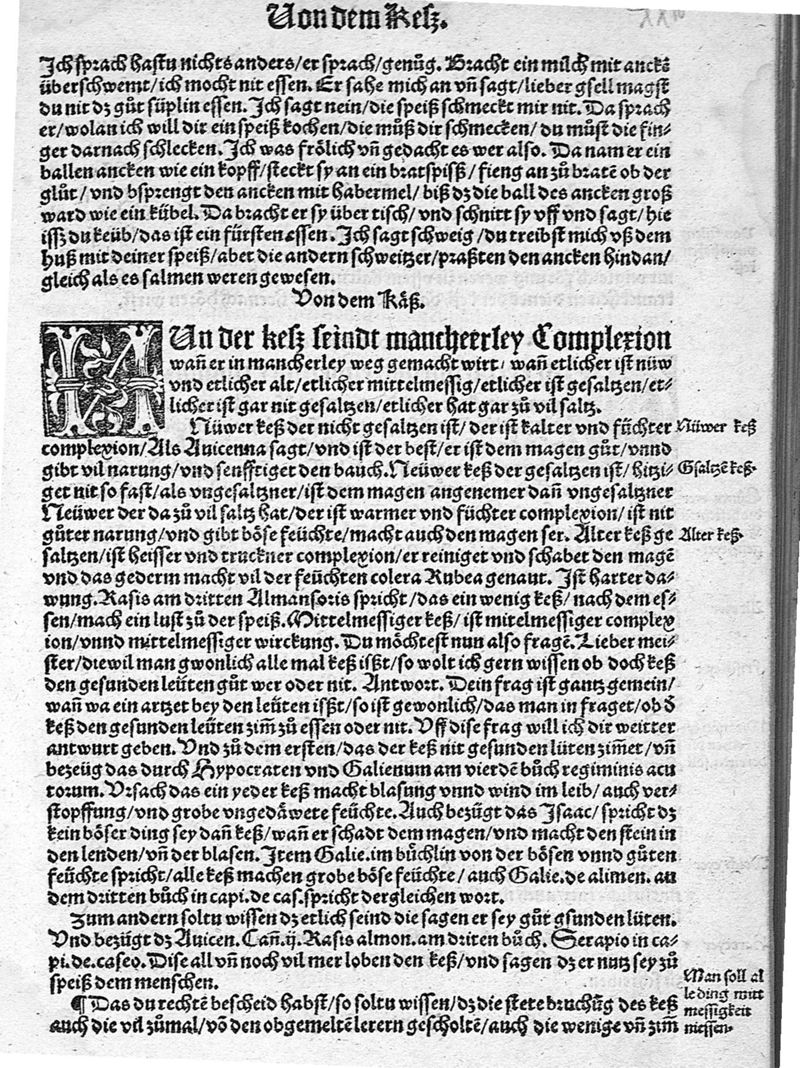 Von dem Kesz.
Ich sprach hastu nichts anders/er sprach/genůg. Bracht ein milch mit anckē
überschwemt/ich mocht nit essen. Er sahe mich an vñ sagt/lieber gsell magst
du nit dz gůt süplin essen. Ich sagt nein/die speiß schmeckt mir nit. Da sprach
er/wolan ich will dir ein speiß kochen/die můß dir schmecken/du můst die fin⸗
ger darnach schlecken. Ich was frölich vñ gedacht es wer also. Da nam er ein
ballen ancken wie ein kopff/steckt sy an ein bratspisß/fieng an zů bratē ob der
glůt/vnd bsprengt den ancken mit habermel/biß dz die ball des ancken groß
ward wie ein kübel. Da bracht er sy über tisch/vnd schnitt sy vff vnd sagt/hie
issz du keüb/das ist ein fürsten essen. Ich sagt schweig/du treibst mich vß dem
huß mit deiner speiß/aber die andern schweitzer/praßten den ancken hindan/
gleich als es salmen weren gewesen.
Von dem Käß.
NUn der kesz seindt mancheerley Complexion
wañ er in mancherley weg gemacht wirt/wañ etlicher ist nüw
vnd etlicher alt/etlicher mittelmessig/etlicher ist gesaltzen/et⸗
licher ist gar nit gesaltzen/etlicher hat gar zů vil saltz.
Nüwer keß der nicht gesaltzen ist/der ist kalter vnd füchter
Nüwer keß
complexion/Als Auicenna sagt/vnd ist der best/er ist dem magen gůt/vnnd
gibt vil narung/vnd senfftiget den bauch. Neüwer keß der gesaltzen ist/hitzi⸗
Gsaltzē keß.
get nit so fast/als vngesaltzner/ist dem magen angenemer dañ vngesaltzner
Neüwer der da zů vil saltz hat/der ist warmer vnd füchter complexion/ist nit
gůter narung/vnd gibt böse feüchte/macht auch den magen ser. Alter keß ge
Alter keß.
saltzen/ist heisser vnd truckner complexion/er reiniget vnd schabet den magē
vnd das gederm macht vil der feüchten colera Rubea genant. Ist harter da⸗
wung. Rasis am dritten Almansoris spricht/das ein wenig keß/nach dem es⸗
sen/mach ein lust zů der speiß. Mittelmessiger keß/ist mitelmessiger complex
ion/vnnd mittelmessiger wirckung. Du möchtest nun also fragē. Lieber mei⸗
ster/diewil man gwonlich alle mal keß isßt/so wolt ich gern wissen ob doch keß
den gesunden leüten gůt wer oder nit. Antwort. Dein frag ist gantz gemein/
wañ wa ein artzet bey den leüten isßt/so ist gewonlich/das man in fraget/ob d̄
keß den gesunden leüten zim̄ zů essen oder nit. Vff dise frag will ich dir weitter
antwurt geben. Vnd zů dem ersten/das der keß nit gesunden lüten zim̄et/vñ
bezeüg das durch Hypocraten vnd Galienum am vierdē bůch regiminis acu
torum. Vrsach das ein yeder keß macht blasung vnnd wind im leib/auch ver⸗
stopffung/vnd grobe vngedäwete feüchte. Auch bezügt das Isaac/spricht dz
kein böser ding sey dañ keß/wañ er schadt dem magen/vnd macht den stein in
den lenden/vñ der blasen. Item Galie. im büchlin von der bösen vnnd gůten
feüchte spricht/alle keß machen grobe böse feüchte/auch Galie. de alimen. an
dem dritten bůch in capi. de cas. spricht dergleichen wort.
Zum andern soltu wissen dz etlich seind die sagen er sey gůt gsunden lüten.
Vnd bezügt dz Auicen. Cañ. ij. Rasis almon. am driten bůch. Serapio in ca⸗
pi. de caseo. Dise all vñ noch vil mer loben den keß/vnd sagen dz er nutz sey zů
speiß dem menschen.
¶ Das du rechtē bescheid habst/so soltu wissen/dz die stete bruchūg des keß
auch die vil zůmal/vō den obgemeltē lerern gescholtē/auch die wenige vñ zim̄
Man soll al
le ding mitt
messigkeit
niessen.